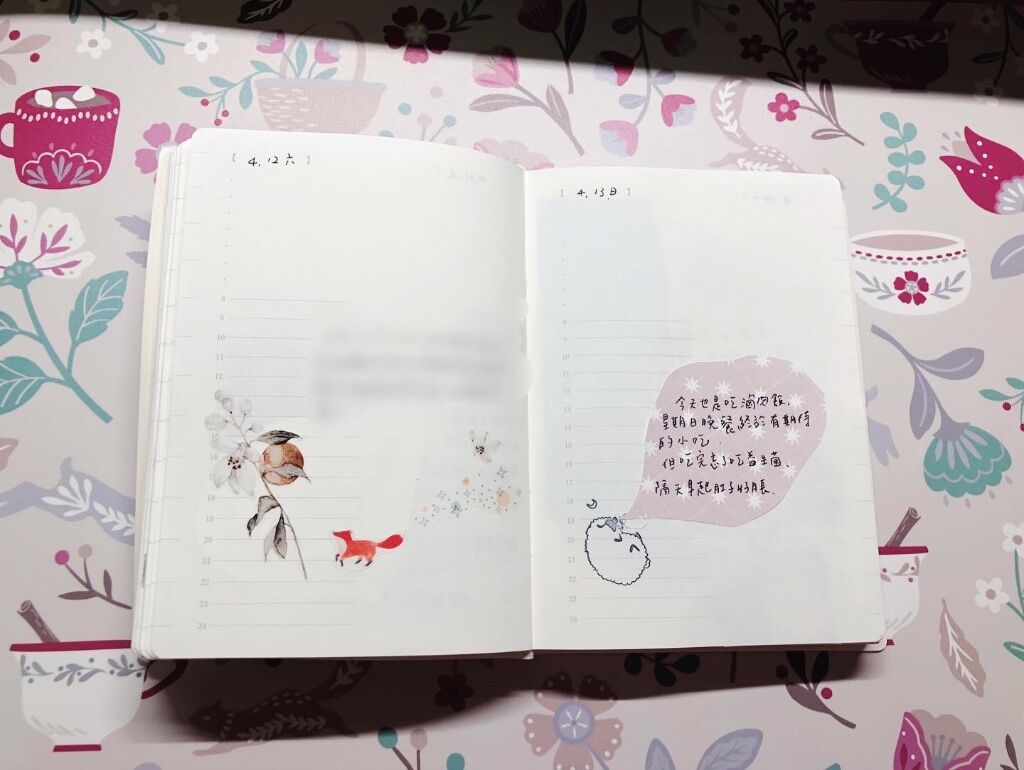 [ 4. 12 六 ]
8
9
10
11
12
13
14
15
16
17
18
19
20
21
22
23
24
[ 4. 13 日 ]
8
9
10
11
12
13
14
15
16
17
18
19
20
21
22
23
24
今天也是吃滷肉飯.
星期日晚餐終於有期待
的小吃.
但吃完忘了吃益生菌.
隔天早起肚子好脹.